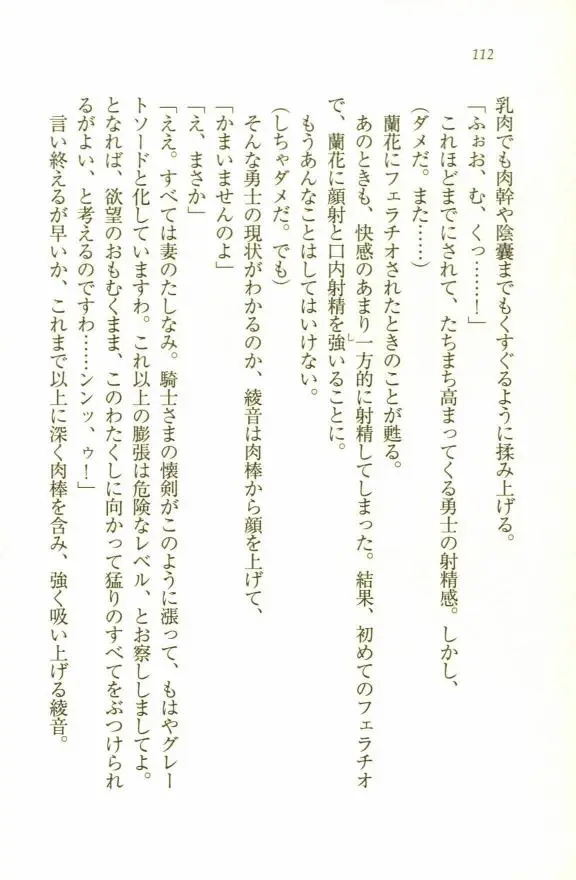 112
乳肉でも肉幹や陰嚢までもくすぐるように揉み上げる。
「ふぉお、む、くっ……！」
これほどまでにされて、たちまち高まってくる勇士の射精感。しかし、
(ダメだ。また……)
蘭花にフェラチオされたときのことが甦る。
あのときも、快感のあまり一方的に射精してしまった。結果、初めてのフェラチオ
で、蘭花に顔射と口内射精を強いることに。
もうあんなことはしてはいけない。
(しちゃダメだ。でも)
そんな勇士の現状がわかるのか、綾音は肉棒から顔を上げて、
「かまいませんのよ」
「え、まさか」
「ええ。すべては妻のたしなみ。騎士さまの懐剣がこのように漲って、もはやグレー
トソードと化していますわ。これ以上の膨張は危険なレベル、とお察ししましてよ。
となれば、欲望のおもむくまま、このわたくしに向かって猛りのすべてをぶつけられ
るがよい、と考えるのですわ……ンンッ、ゥ！」
言い終えるが早いか、これまで以上に深く肉棒を含み、強く吸い上げる綾音。